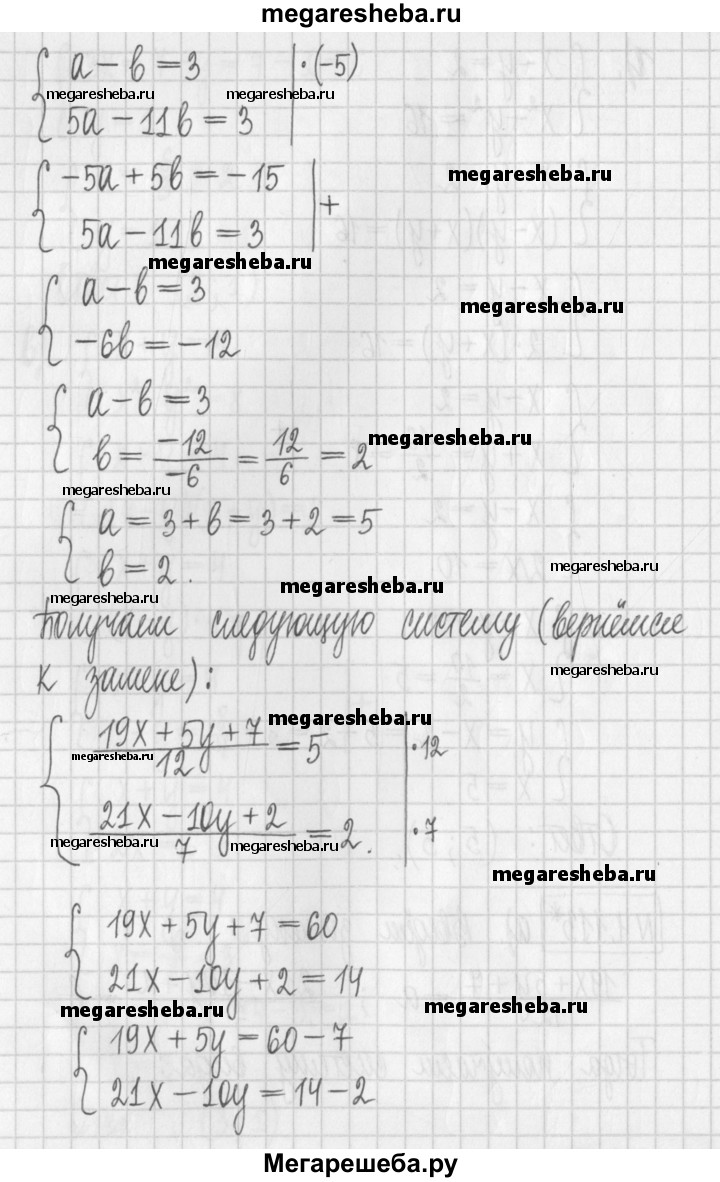 megaresheba.ru
a - b = 3 | · (-5)
megaresheba.ru megaresheba.ru
5a - 11b = 3
-5a + 5b = -15
megaresheba.ru
+
5a - 11b = 3
megaresheba.ru
a - b = 3
megaresheba.ru
-6b = -12
a - b = 3
b = -12/-6 = 12/6 = 2
megaresheba.ru
megaresheba.ru
a = 3 + b = 3 + 2 = 5
b = 2.
megaresheba.ru
megaresheba.ru
megaresheba.ru
Получаем следующую систему (вернёмся
megaresheba.ru
к замене):
megaresheba.ru
(19x + 5y + 7)/12 = 5 | · 12
megaresheba.ru
(21x - 10y + 2)/7 = 2. | · 7
megaresheba.ru megaresheba.ru
megaresheba.ru
19x + 5y + 7 = 60
21x - 10y + 2 = 14
megaresheba.ru megaresheba.ru
19x + 5y = 60 - 7
21x - 10y = 14 - 2
Мегарешеба.ру